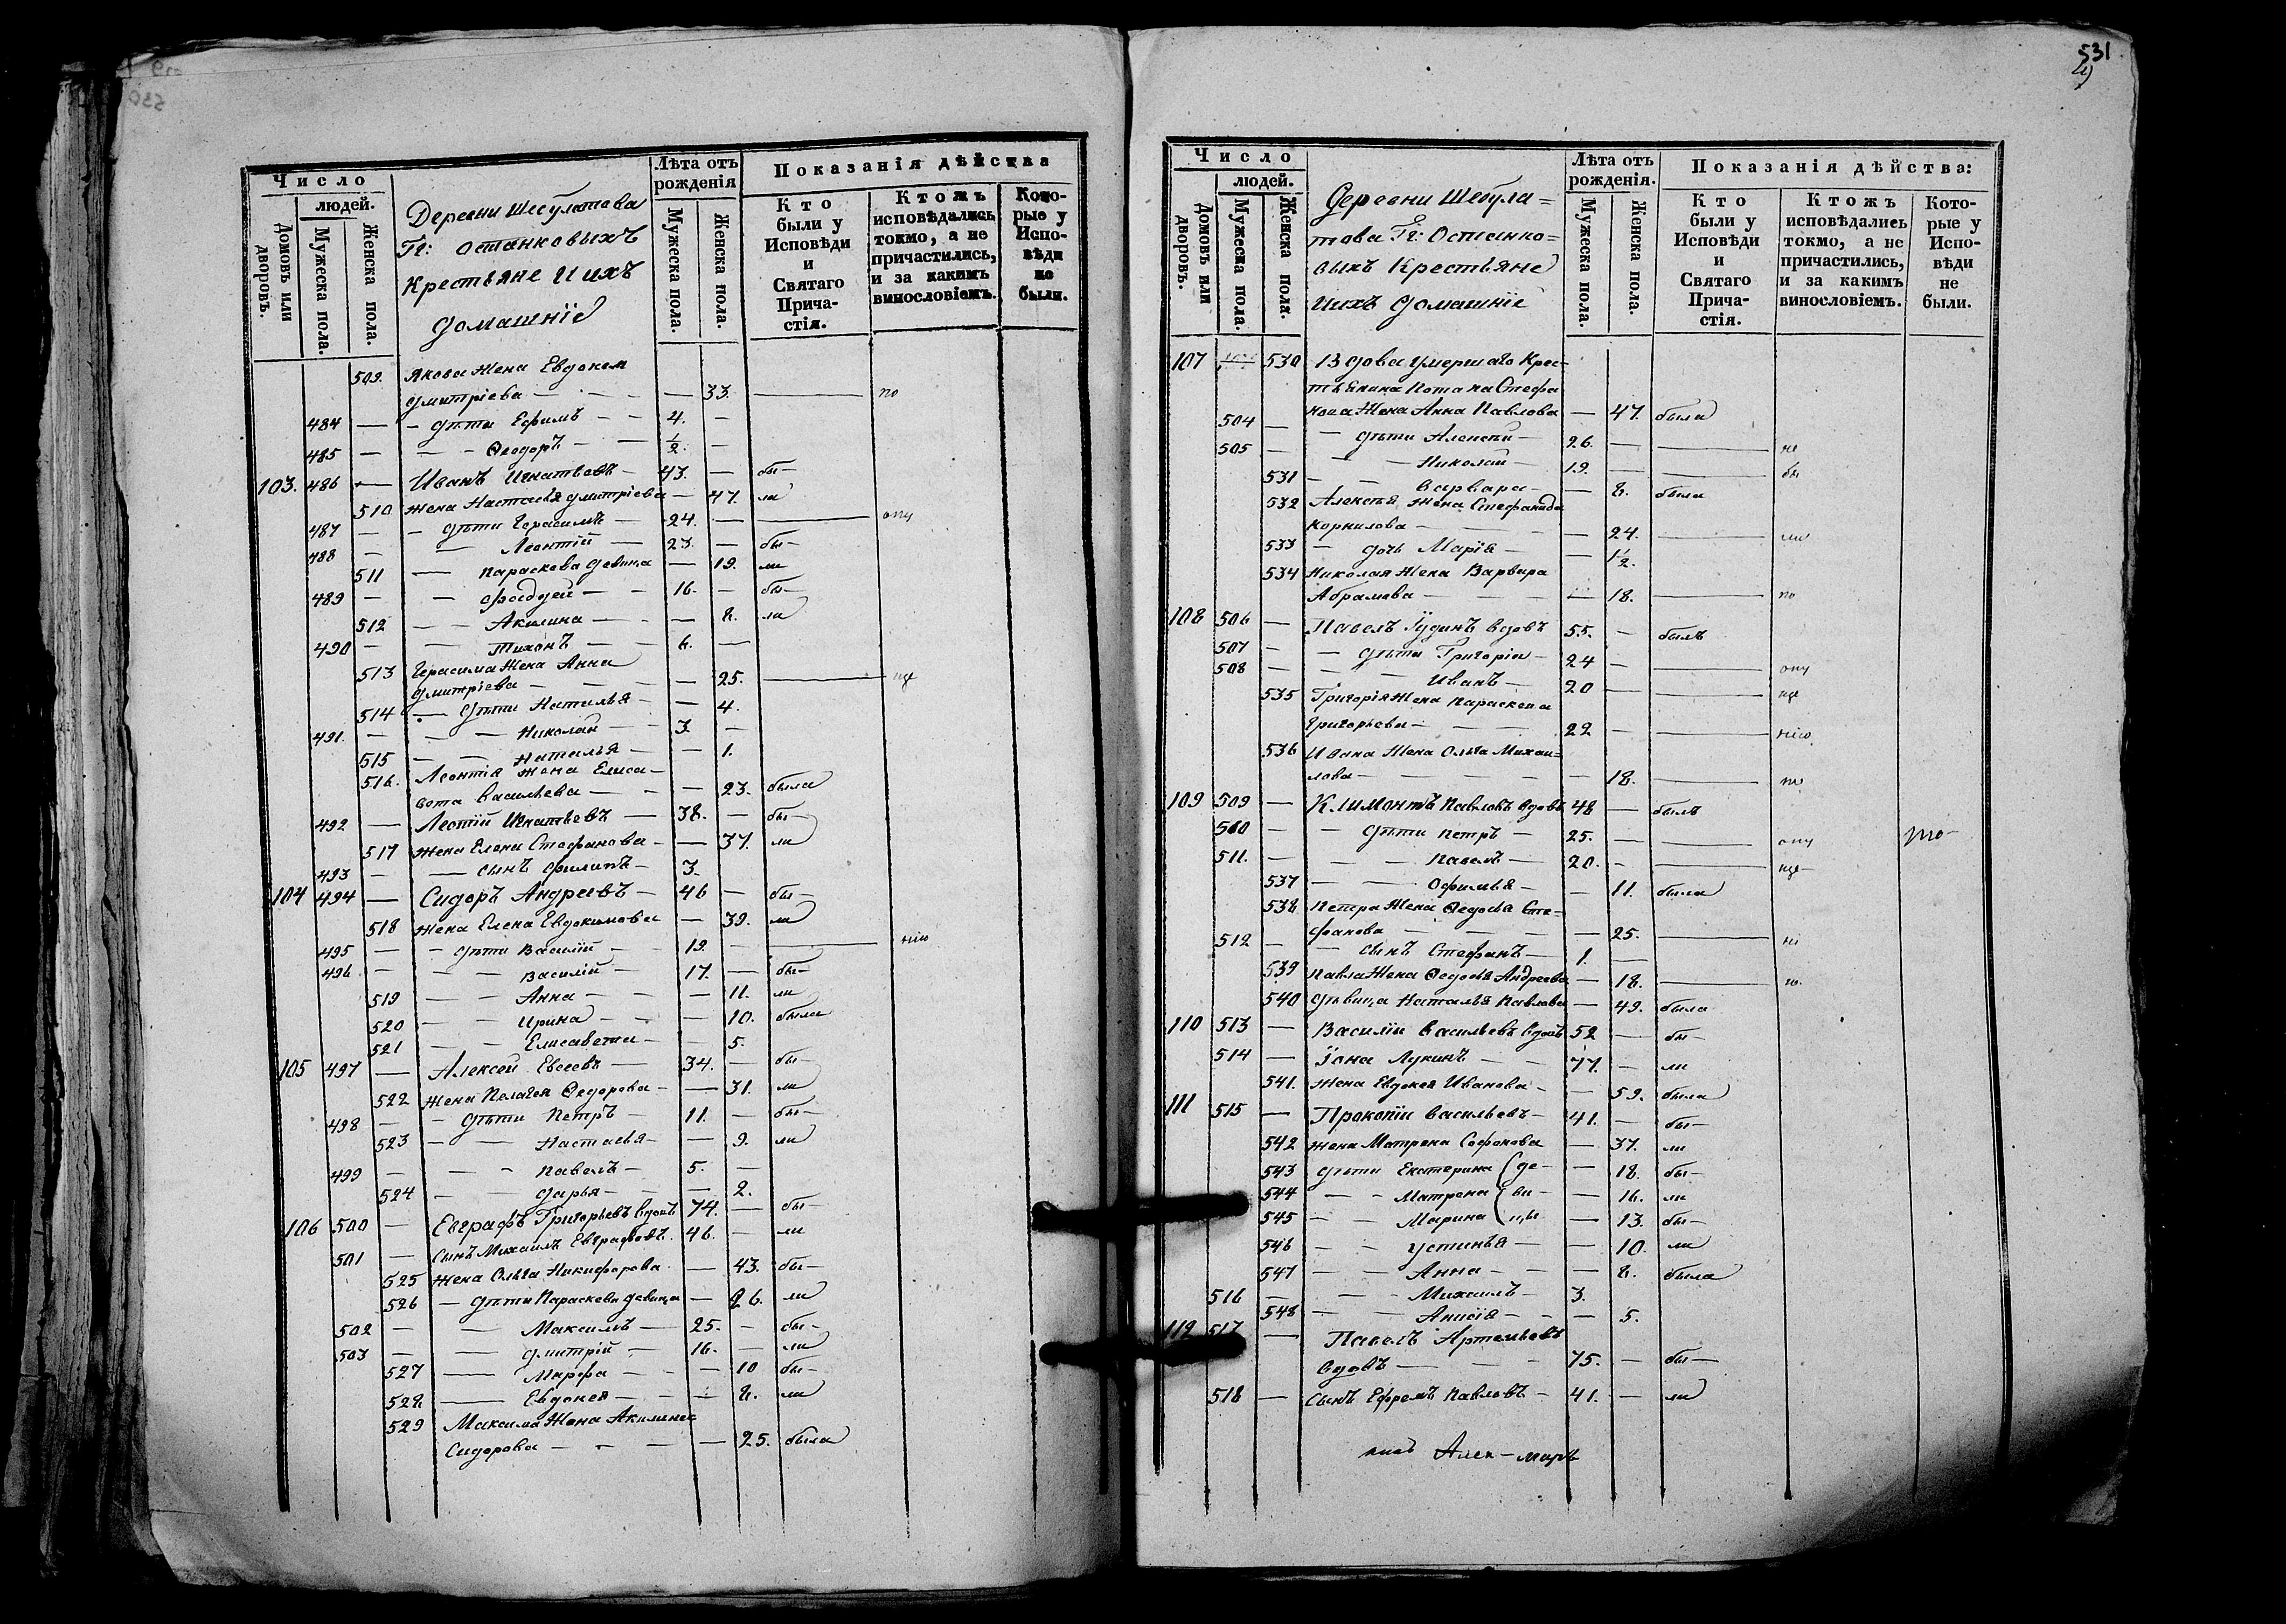 Число
людей.
Домовъ или дворовъ.
Мужеска пола.
Женска пола.
Деревни Шебулатова
Гг: Останковыхъ
Крестьяне и ихъ
домашніе
Лѣта отъ рожденія
Мужеска пола.
Женска пола.
Показанія дѣйства
Кто были у Исповѣди и Святаго Прича-стія.
Ктожъ исповѣдались токмо, а не причастились, и за какимъ винословіемъ.
Кото-рые у Испо-вѣди не были.
509. Якова жена Евдокея
Дмитріева — — — 33. — по
484 — — дѣти Ефимъ — — 4. —
485 — — — Ѳеодоръ — — ½. —
103. 486 — Иванъ Игнатьевъ — 43. — бы—
510 жена Настасья Дмитріева — 47. ли
487 — — дѣти Герасимъ — 24. — — опу
488 — — Леонтій — 23. — бы—
511 — Параскева девица — 19. ли
489 — — Фаддей — — 16. — бы—
512 — — Акилина — — — 8. ли
490 — — Тихонъ — — 6. —
513 Герасима жена Анна
Дмитріева — — — — 25. — ще
514 — дѣти Наталья — — 4.
491. — — — Николай — — 3. —
515 — — Наталья — — 1.
516. Леонтія жена Елиса-
вета Васильева — — — 23. была
492 — Леонтій Игнатьевъ — 38. — бы—
517 жена Елена Стефанова — — 37. ли
493 — — сынъ Филипъ — 3.
104 494 — Сидоръ Андреевъ — 46 — бы—
518 жена Елена Евдокимова — 39. ли
495 — — дѣти Василій — — 19. — — нію
496 — — — Василій — 17. — бы—
519 — — Анна — — — 11. ли
520 — — Ирина — — — 10. была
521 — — Елисавета — — 5.
105 497 — Алексей Евсеевъ — 34. — бы—
522 жена Пелагея Ѳедорова — — 31. ли
498 — — дѣти Петръ — 11. — бы—
523 — — Настасья — — 9. ли
499 — — — Павелъ — 5. —
524 — — Дарья — — — 2.
106 500 — Евграфъ Григорьевъ вдовъ 74. — бы—
501 — сынъ Михаилъ Евграфовъ. 46. — ли
525 жена Ольга Никифорова — 43. бы—
526 — дѣти Параскева девица — 26. ли
502 — — Максимъ — 25. — бы—
503 — — Дмитрій — 16. — ли
527 — Марфа — — — 10 бы—
528 — Евдокея — — — 8. ли
529 Максима жена Акилина
Сидорова — — — — 25. была
531
Число
людей.
Домовъ или дворовъ.
Мужеска пола.
Женска пола.
Деревни Шебула=
това Гг: Останко=
выхъ Крестьяне
и ихъ домашніе
Лѣта отъ рожденія.
Мужеска пола.
Женска пола.
Показанія дѣйства:
Кто были у Исповѣди и Святаго Прича-стія.
Ктожъ исповѣдались токмо, а не причастились, и за какимъ винословіемъ.
Кото-рые у Испо-вѣди не были.
107 530 Вдова умершаго Крес-
тьянина Потапа Стефа
нова жена Анна Павлова — 47. была
504 — — дѣти Алексѣй — 26. — — не
505 — — — Николай — 19. — — бы
531 — — Варвара — — 8. была
532 Алексѣя жена Стефанида
Корнилова — — — 24. — ли
533 — дочь Марія — — ½.
534 Николая жена Варвара
Абрамова — — — — 18. — по
108 506 — Павелъ Іудинъ вдовъ 55. — былъ
507 — — дѣти Григорій — 24 — — опу
508 — — Иванъ — 20 — — ще
535 Григорія жена Параскева
Григорьева — — — 22 — — нію
536 Ивана жена Ольга Михаи=
лова — — — — — 18. —
109 509 — Климонтъ Павловъ вдовъ 48 — былъ
510 — — дѣти Петръ — 25. — — опу то—
511. — — — Павелъ — 20. — — ще—
537 — — Офимья — — 11. была
538 Петра жена Ѳедосья Сте=
фанова — — — — 25. — ні
512 — — сынъ Стефанъ — 1. —
539 Павла жена Ѳедосья Андреева — 18. — ю.
540 дѣвица Наталья Павлова — 49. была
110 513 — Василій Васильевъ вдовъ 52 — бы—
514 — Іона Лукинъ — — 77. — ли
541. жена Евдокея Иванова — — 59. была
111 515 — Прокопій Васильевъ — 41. — бы—
542 жена Матрена Софонова — 37. ли
543 дѣти Екатерина де— — 18. бы—
544 — — Матрена ви— — 16. ли
545 — — Марина цы — 13. бы—
546 — — Устинья — — 10. ли
547 — — Анна — — — 8. была
516 — — — Михаилъ — 3.
548 — — Анисія — — — 5.
112 517 — Павелъ Артемьевъ
вдовъ — — — 75. — бы—
518 — сынъ Ефремъ Павловъ — 41. — ли